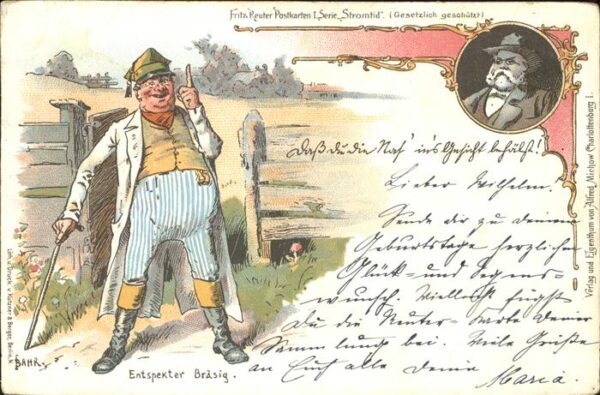 Fritz Reuter Postkarten I. Serie „Stromtid“. (Gesetzlich geschützt)
Daß du die Nas' in's Gesicht behälst!
Lieber Wilhelm.
Sende dir zu deinem
Geburtstage herzlichen
Glück- und Segens-
wunsch. Vielleicht fügst
Du die Reuter-Karte deiner
Sammlung bei. Viele Grüße
an Euch alle deine
Maria.
Entspekter Bräsig.
BAHR.
Lith. u. Druck v. Berger, Berlin.
Verlag und Eigenthum von Alfred Michow Charlottenburg I.